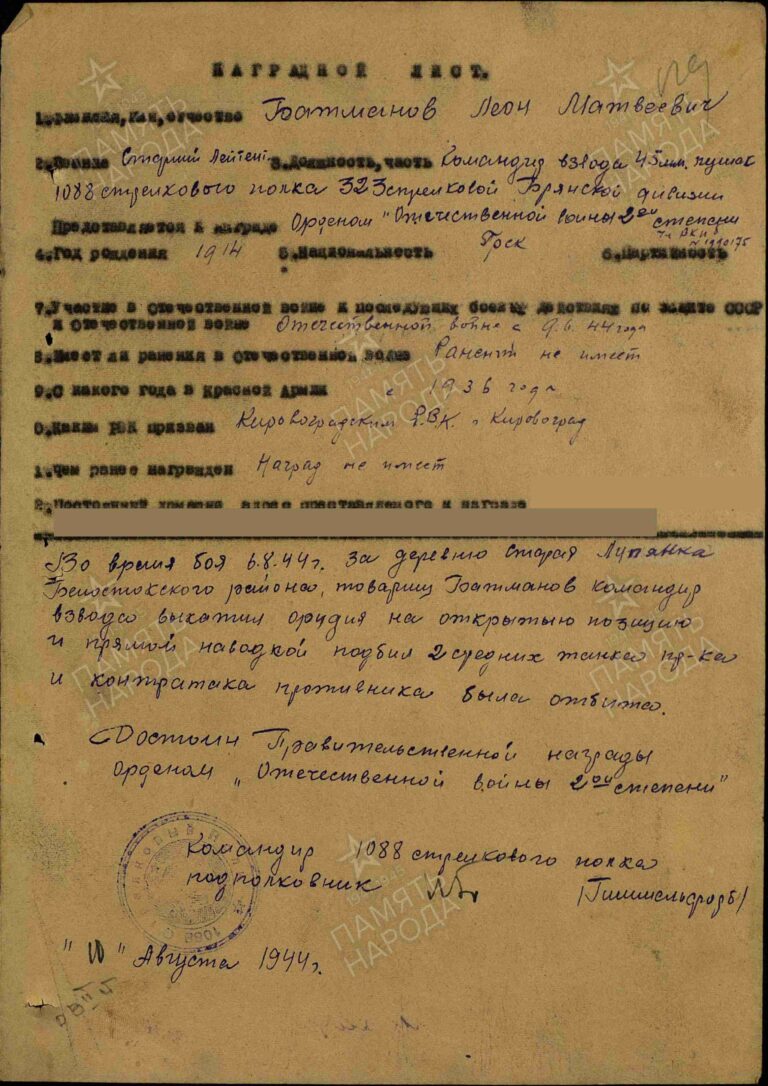 НАГРАДНОЙ ЛИСТ.
1. Фамилия, имя, отчество Батманов Леон Матвеевич
2. Звание Старший Лейтент. 3. Должность, часть Командир взвода 45мм. пушек
1088 стрелкового полка 323 стрелковой Брянской дивизии
Представляется к награде Орденом "Отечественной войны 2ой степени"
4. Год рождения 1914 5. Национальность Грек 6. Партийность чл ВКП б
7. Участие в Отечественной войне и последующих боевых действиях по защите СССР
и отечественной войне Отечественной войне с 9.6.44 года
8. Имеет ли ранения в Отечественной войне Ранений не имеет
9. С какого года в Красной Армии с 1936 года
0. Каким РВК призван Кировоградским Р.В.К. г Кировоград
1. Чем ранее награжден Наград не имеет
2. Постоянный домашн адрес представляемого к награде
Во время боя 6.8.44 г. за деревню Старая Лупянка
Белостокского района, товарищ Батманов командир
взвода выкатил орудия на открытую позицию
и прямой наводкой подбил 2 средних танка пр-ка
и контратака противника была отбита.
Достоин Правительственной награды
орденом „Отечественной войны 2ой степени"
Командир 1088 стрелкового полка
подполковник
"10" Августа 1944 г.
ПАМЯТЬ НАРОДА
1941-1945